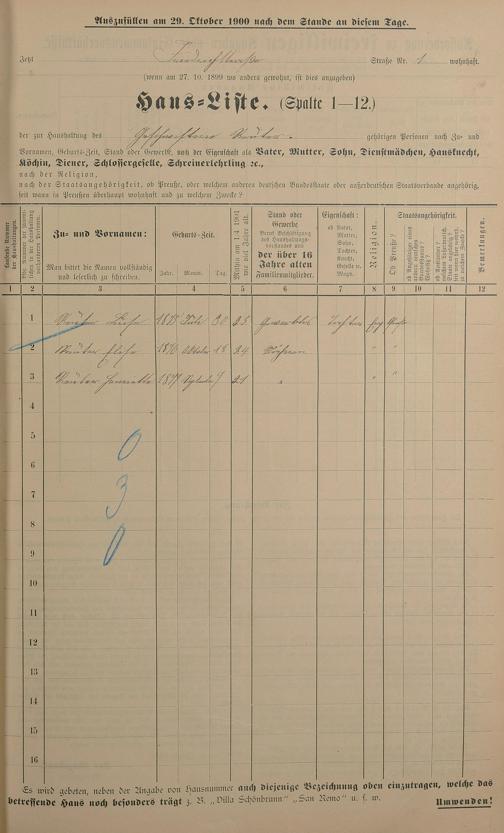 Auszufüllen am 29. Oktober 1900 nach dem Stande an diesem Tage.
Jetzt Friedrichstraße Straße Nr. 1 wohnhaft.
(wenn am 27. 10. 1899 wo anders gewohnt, ist dies anzugeben)
Haus-Liste. (Spalte 1—12.)
der zur Haushaltung des Geschwister Reuter. gehörigen Personen nach Zu- und
Vornamen, Geburts-Zeit, Stand oder Gewerbe, nebst der Eigenschaft als Vater, Mutter, Sohn, Dienstmädchen, Hausknecht,
Köchin, Diener, Schlossergeselle, Schreinerlehrling ec.,
nach der Religion,
nach der Staatsangehörigkeit, ob Preuße, oder welchem anderen deutschen Bundesstaate oder außerdeutschen Staatsverbande angehörig,
seit wann in Preußen überhaupt wohnhaft und zu welchem Zwecke?
Zu- und Vornamen:
Man bittet die Namen vollständig
und leserlich zu schreiben.
Geburts-Zeit.
Jahr. Monat. Tag.
Mithin am 1/4 1901
wie viel Jahre alt.
Stand oder
Gewerbe
der über 16
Jahre alten
Familienmitglieder.
Eigenschaft:
ob Vater,
Mutter,
Sohn,
Tochter,
Knecht,
Geselle u.
Magd.
Religion.
Staatsangehörigkeit.
Ob Preuße?
Bemerkungen.
1 2 3 4 5 6 7 8 9 10 11 12
1 Reuter 1875 Juli 30 25 Tochter
2 Reuter 1876 Oktober 18 24
3 Reuter Henriette 1879 21 "
4
5
6
7
8
9
10
11
12
13
14
15
16
0
3
0
Es wird gebeten, neben der Angabe von Hausnummer auch diejenige Bezeichnung oben einzutragen, welche das
betreffende Haus noch besonders trägt z. B. „Villa Schönbrunn" „San Remo" u. s. w. Umwenden!